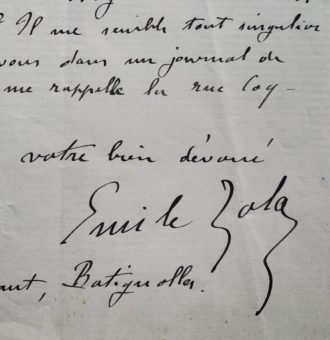 ? Il me semble tout singulier
vous dans un journal de
me rappelle la rue Coq-
votre bien dévoué
Emile Zola
ant, Batignolles.